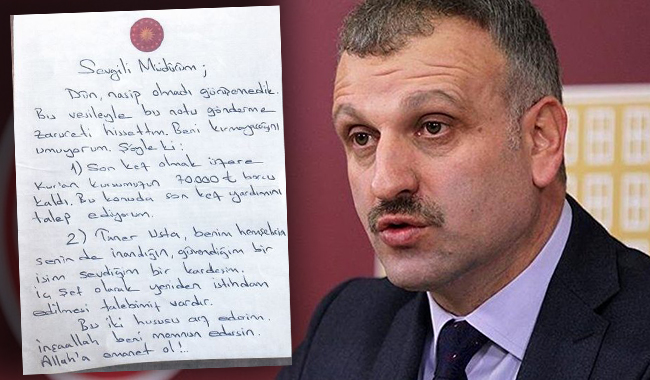 Sevgili Müdürüm;
Dün, nasip olmadı görüşemedik.
Bu vesileyle bu notu gönderme
zarureti hissettim. Beni kırmayacağını
umuyorum. Şöyle ki:
1) Son kez olmak üzere
Kur'an kursumuzun 70.000 ₺ borcu
kaldı. Bu konuda son kez yardımını
talep ediyorum.
2) Taner Usta, benim hemşehrim
senin de inandığın, güvendiğim bir
isim sevdiğim bir kardeşim.
İç Şef olarak yeniden istihdam
edilmesi talebimiz vardır.
Bu iki hususu arz ederim.
inşaallah beni memnun edersin.
Allah'a emanet ol!..